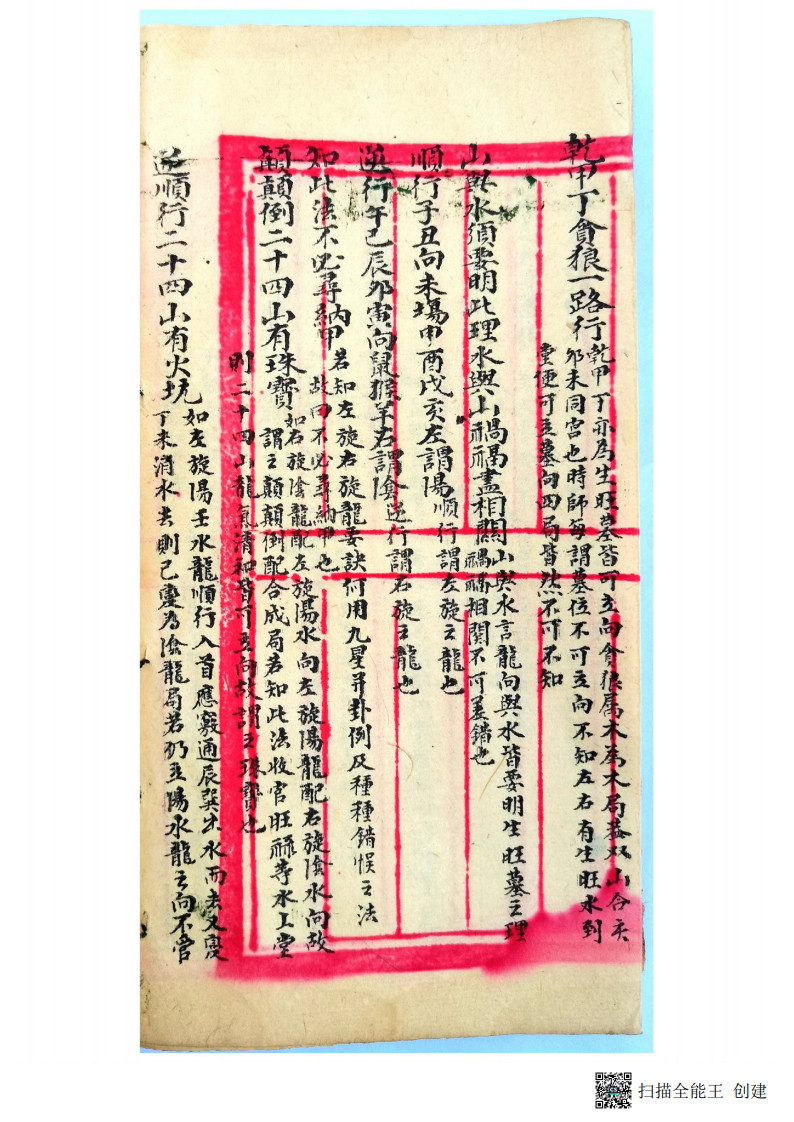 乾甲丁貪狼一路行
乾甲丁亦為生旺墓皆可立向貪狼屬木為木局蓋双山合亥
卯未同宮也時師每謂墓位不可立向不知左右有生旺水到
堂便可立墓向四局皆然不可不知
山與水須要明此理水與山禍福盡相關
山與水言龍向與水皆要明生旺墓之理
禍福相関不可差錯也
順行子丑向未塲申酉戌亥左謂陽
順行謂左旋之龍也
逆行午巳辰卯寅向鼠猴羊右謂陰
逆行謂右旋之龍也
知此法不必尋納甲
若知左旋右旋龍要訣何用九星并卦例及種種錯悮之法
故曰不必尋納甲也
顛顛倒二十四山有珠寶
如右旋陰龍配左旋陽水向左旋陽龍配右旋陰水向故
謂之顛顛倒配合成局若知此法收官旺祿等水上堂
則二十四山龍氣清和皆可立向故謂之珠寶也
逆順行二十四山有火坑
如左旋陽壬水龍順行入首應竅通辰巽出水而去又變
丁未消水去則已變為陰龍局若仍立陽水龍之向不管
扫描全能王 创建